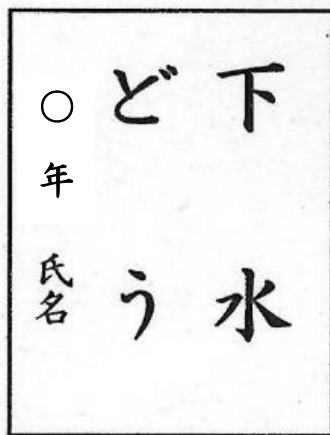 下水
どう
○年 氏名